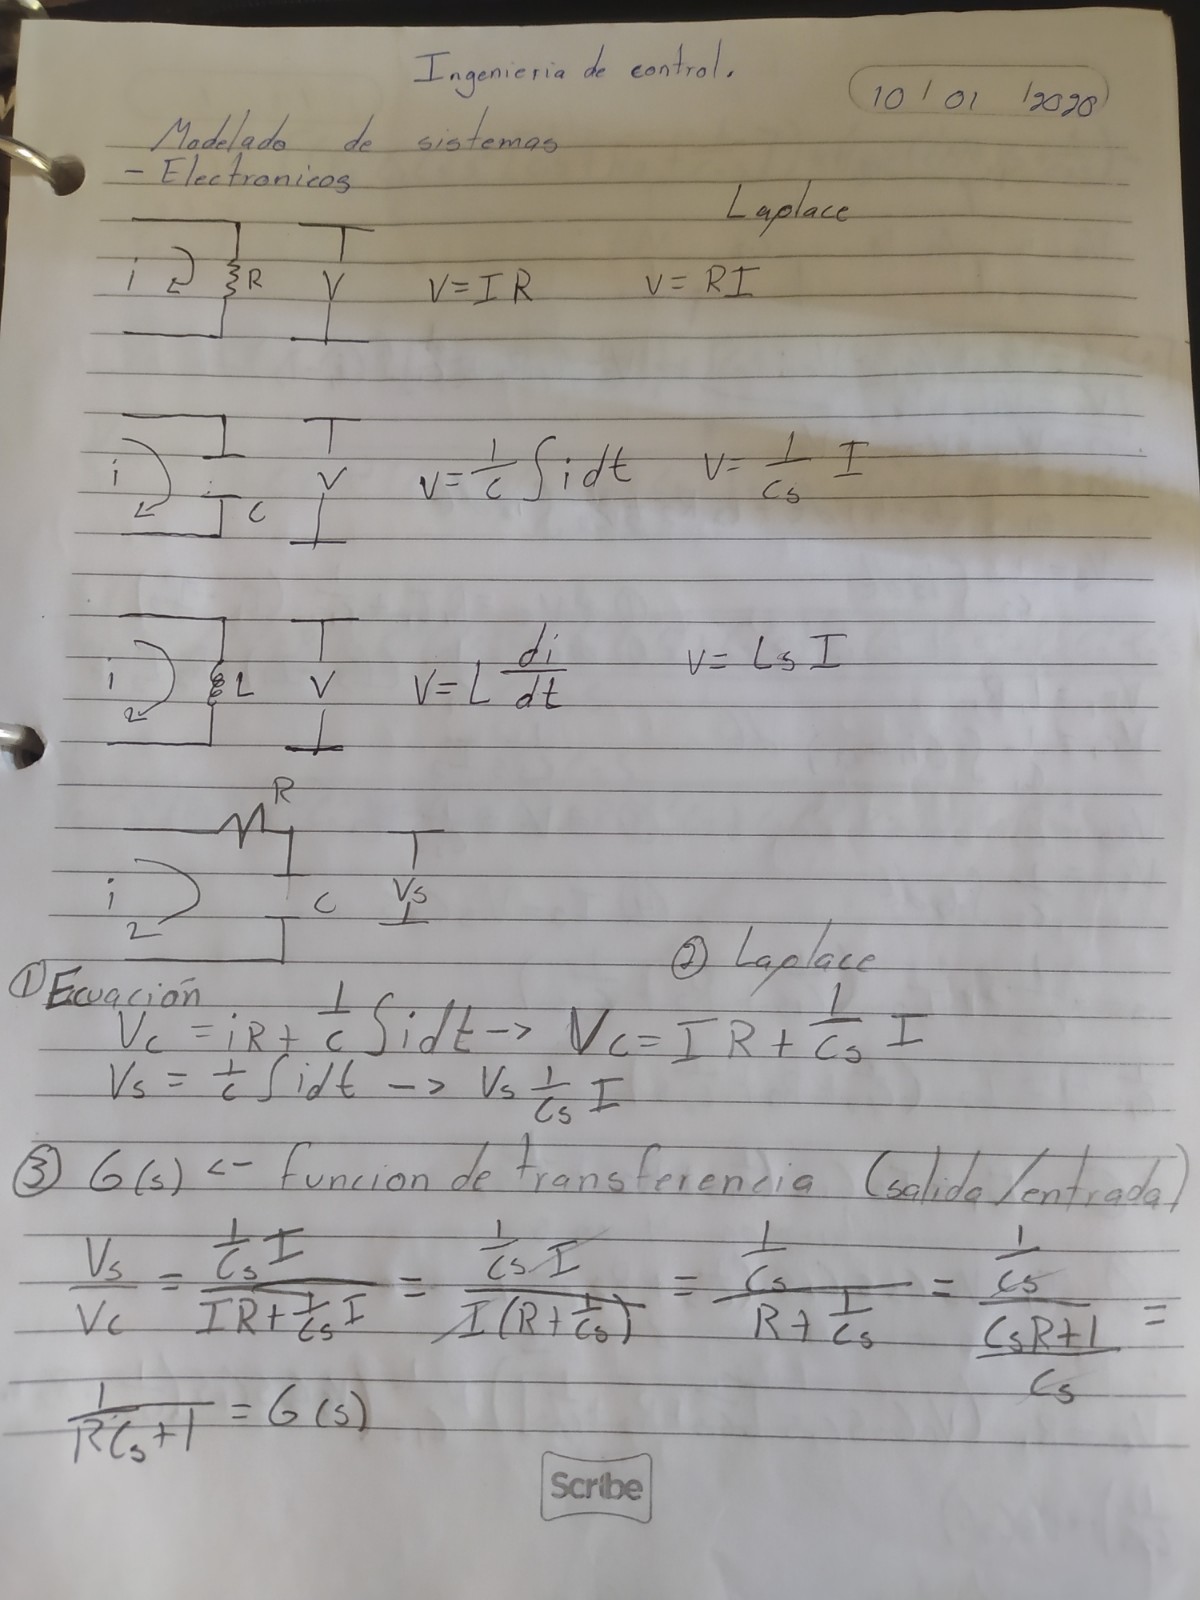 Ingenieria de control.
10 / 01 / 2020
Modelado de sistemas
- Electronicos
Laplace
i R V V = I R V = RI
i C V V = 1/C ∫ i dt V = 1/Cs I
i L V V = L di/dt V = Ls I
R
i C Vs
② Laplace
① Ecuación
Vc = iR + 1/C ∫ i dt -> Vc = I R + 1/Cs I
Vs = 1/C ∫ i dt -> Vs 1/Cs I
③ G(s) <- funcion de transferencia (salida/entrada)
Vs/Vc = (1/Cs I)/(IR + 1/Cs I) = (1/Cs I)/(I(R + 1/Cs)) = (1/Cs)/(R + 1/Cs) = (1/Cs)/((CsR+1)/Cs) =
1/(RCs+1) = G(s)
Scribe